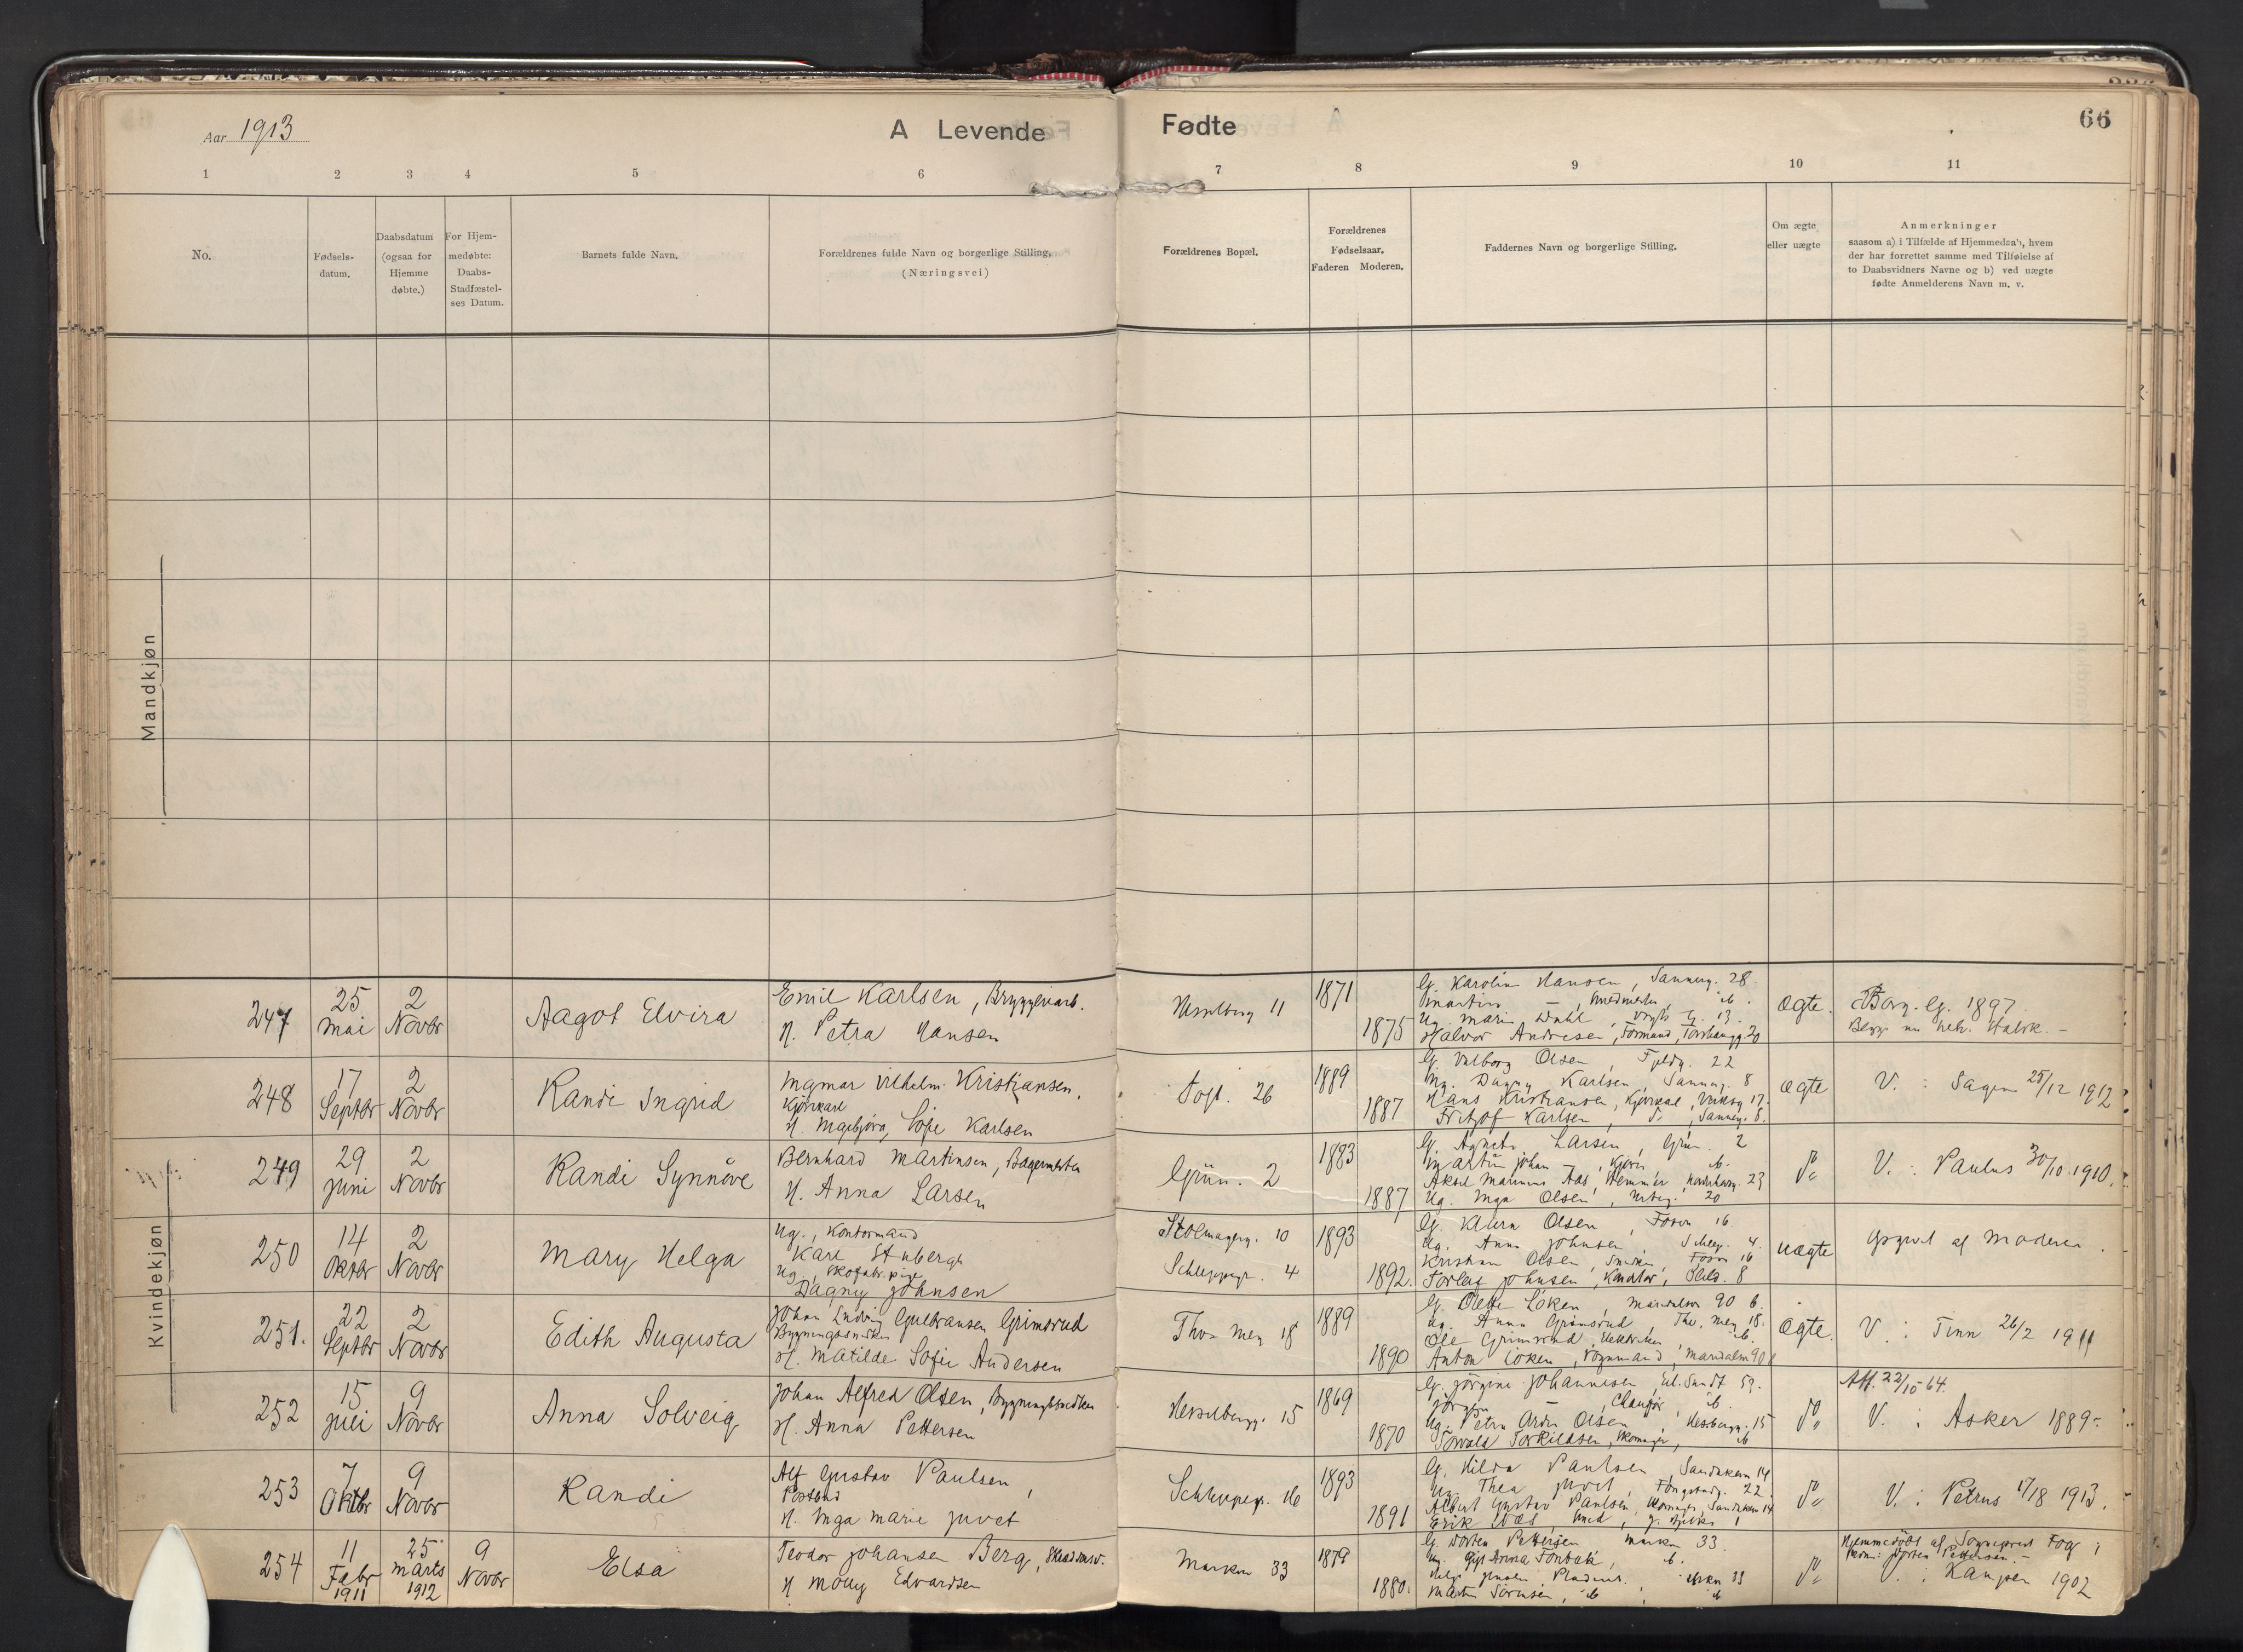 Aar 1913
A Levende Fødte
66
1 2 3 4 5 6 7 8 9 10 11
No.
Fødsels-
datum.
Daabsdatum
(ogsaa for
Hjemme
døbte.)
For Hjem-
medøbte:
Daabs-
Stadfæstel-
ses Datum.
Barnets fulde Navn.
Forældrenes fulde Navn og borgerlige Stilling.
(Næringsvei)
Forældrenes Bopæl.
Forældrenes
Fødselsaar.
Faderen Moderen.
Faddernes Navn og borgerlige Stilling.
Om ægte
eller uægte
Anmerkninger
saasom a) i Tilfælde af Hjemmedaab, hvem
der har forrettet samme med Tilføielse af
to Daabsvidners Navne og b) ved uægte
fødte Anmelderens Navn m. v.
Mandkjøn
Kvindekjøn
247
25
Mai
2
Novbr
Aagot Elvira
Emil Karlsen, Bryggeriarb.
H. Petra Hansen
Hesselberg 11
1871
1875
G. Karolin Hansen, Sannerg. 28
Martin —
Ug. Marie Dahl
Halvor Andresen, Formand
ægte.
Borg. lg. 1897
248
17
Septbr
2
Novbr
Randi Ingrid
Ingmar Vilhelm Kristiansen,
Kjørekarl
H. Ingebjørg Sofie Karlsen
Toft. 26
1889
1887
G. Valborg Olsen, 22
Ug. Dagny Karlsen, Sannerg. 8
Hans Kristiansen, Kjørekarl, 17.
Fritjof Karlsen, Sannerg. 8.
ægte
V. : Sagene 25/12 1912
249
29
Juni
2
Novbr
Randi Synnöve
Bernhard Martinsen, Bagermester
H. Anna Larsen
Grün. 2
1883
1887
G. Agnete Larsen, Grün. 2
Martin Johan —
Aksel Marinius Aas
Ug. Inga Olsen, 20
do
V. : Paulus 30/10 1910.
250
14
Oktbr
2
Novbr
Mary Helga
Ug., Kontormand
Karl Stubergh
Ug., Skofabr. pige
Dagny Johnsen
Stolmagerg. 10
Schleppegr. 4
1893
1892.
G. Klara Olsen, 16
Ug. Anna Johnsen, Schlep. 4.
Kristian Olsen, Snedker, 16
Torleif Johnsen, 8
uægte
Opgivet af Moderen.
251.
22
Septbr
2
Novbr
Edith Augusta
Johan Ludvig Gulbransen Grimsrud
Bygningssnedker
H. Matilde Sofie Andersen
Ths. Mey 18
1889
1890
G. Olette Löken, Maridalsv 90 b.
Ug. Anna Grimsrud, Ths. Mey 18.
Ole Grimsrud
Anton Löken, Vognmand, Maridalsv 90
ægte.
V. : Tinn 26/2 1911
252
15
Juli
9
Novbr
Anna Solveig
Johan Alfred Olsen, Bygningssnedker
H. Anna Pettersen
Hesselbergg. 15
1869
1870
G. Jörgine Johannesen, Eil. Sundt 59.
Jörgen —
Ug. Petra Olsen, Hesselbergg. 15
Torvald Torkildsen, Skomager
do
Att. 22/10 64.
V. : Asker 1889.
253
7
Oktbr
9
Novbr
Randi
Alf Gustav Paulsen,
Postbud
H. Inga Marie Juvet
Schleppegr. 16
1893
1891
G. Hilda Paulsen, Sandakerv 14
Ug. Thea Juvet, 22.
Albert Gustav Paulsen, Skomager, Sandakerv 14
Erik Næs
do
V. : Petrus 1913.
254
11
Febr
1911
25
Marts
1912
9
Novbr
Elsa
Teodor Johansen Berg,
H. Molly Edvardsen
Markvn 33
1879
1880.
G. Dorthea Pettersen Markvn 33.
Ug. Anna
Martin Sörensen
do
Hjemmedöbt af Sogneprest
: Kampen 1902